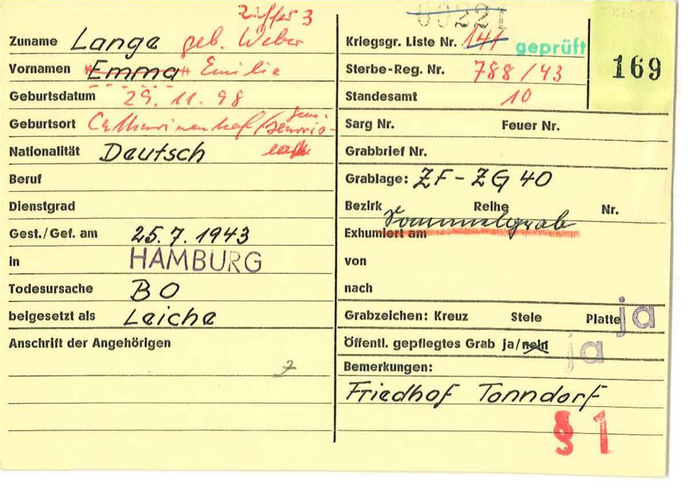 Ziffer 3
Zuname Lange geb. Weber
Vornamen Emma Emilie
Geburtsdatum 29.11.98
Geburtsort
Nationalität Deutsch
Beruf
Dienstgrad
Gest./Gef. am 25.7.1943
in HAMBURG
Todesursache BO
beigesetzt als Leiche
Anschrift der Angehörigen
7
Kriegsgr. Liste Nr. 141 geprüft
Sterbe-Reg. Nr. 788/43
Standesamt 10
169
Sarg Nr. Feuer Nr.
Grabbrief Nr.
Grablage: ZF-ZG 40
Bezirk Reihe Nr.
Sammelgrab
Exhumiert am
von
nach
Grabzeichen: Kreuz Stele Platte ja
Öffentl. gepflegtes Grab ja/nein ja
Bemerkungen:
Friedhof Tonndorf
§ 1